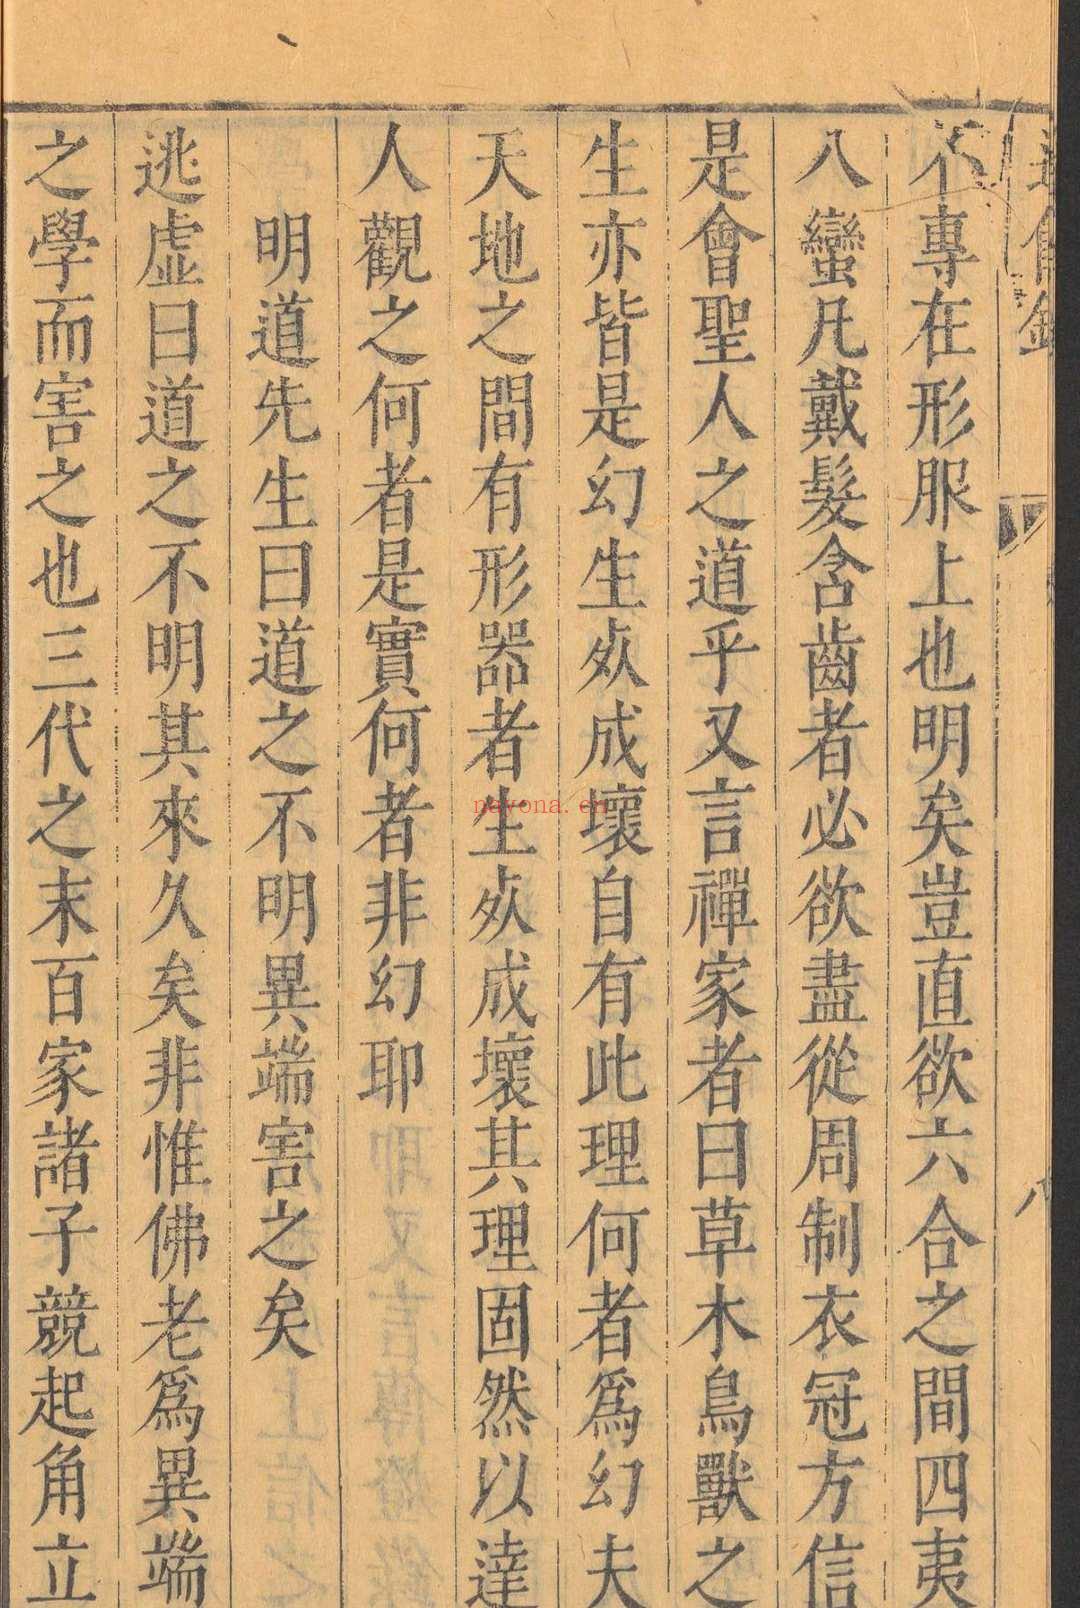 不專在形服上也明矣豈直欲六合之間四夷
八蠻凡戴髮含齒者必欲盡從周制衣冠方信
是會聖人之道乎又言禪家者曰草木鳥獸之
生亦皆是幻生㱠成壞自有此理何者爲幻夫
天地之間有形器者生㱠成壞其理固然以達
人觀之何者是實何者非幻耶
明道先生曰道之不明異端害之矣
逃虛曰道之不明其來久矣非惟佛老爲異端
之學而害之也三代之末百家諸子競起角立
nayona.cn